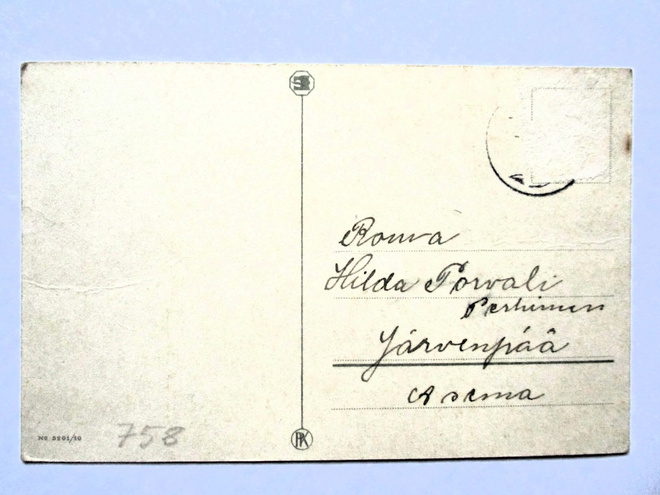 Rouva
Hilda Porvali
Perhineen
Järvenpää
Asema
NR 5501/10
758
PK